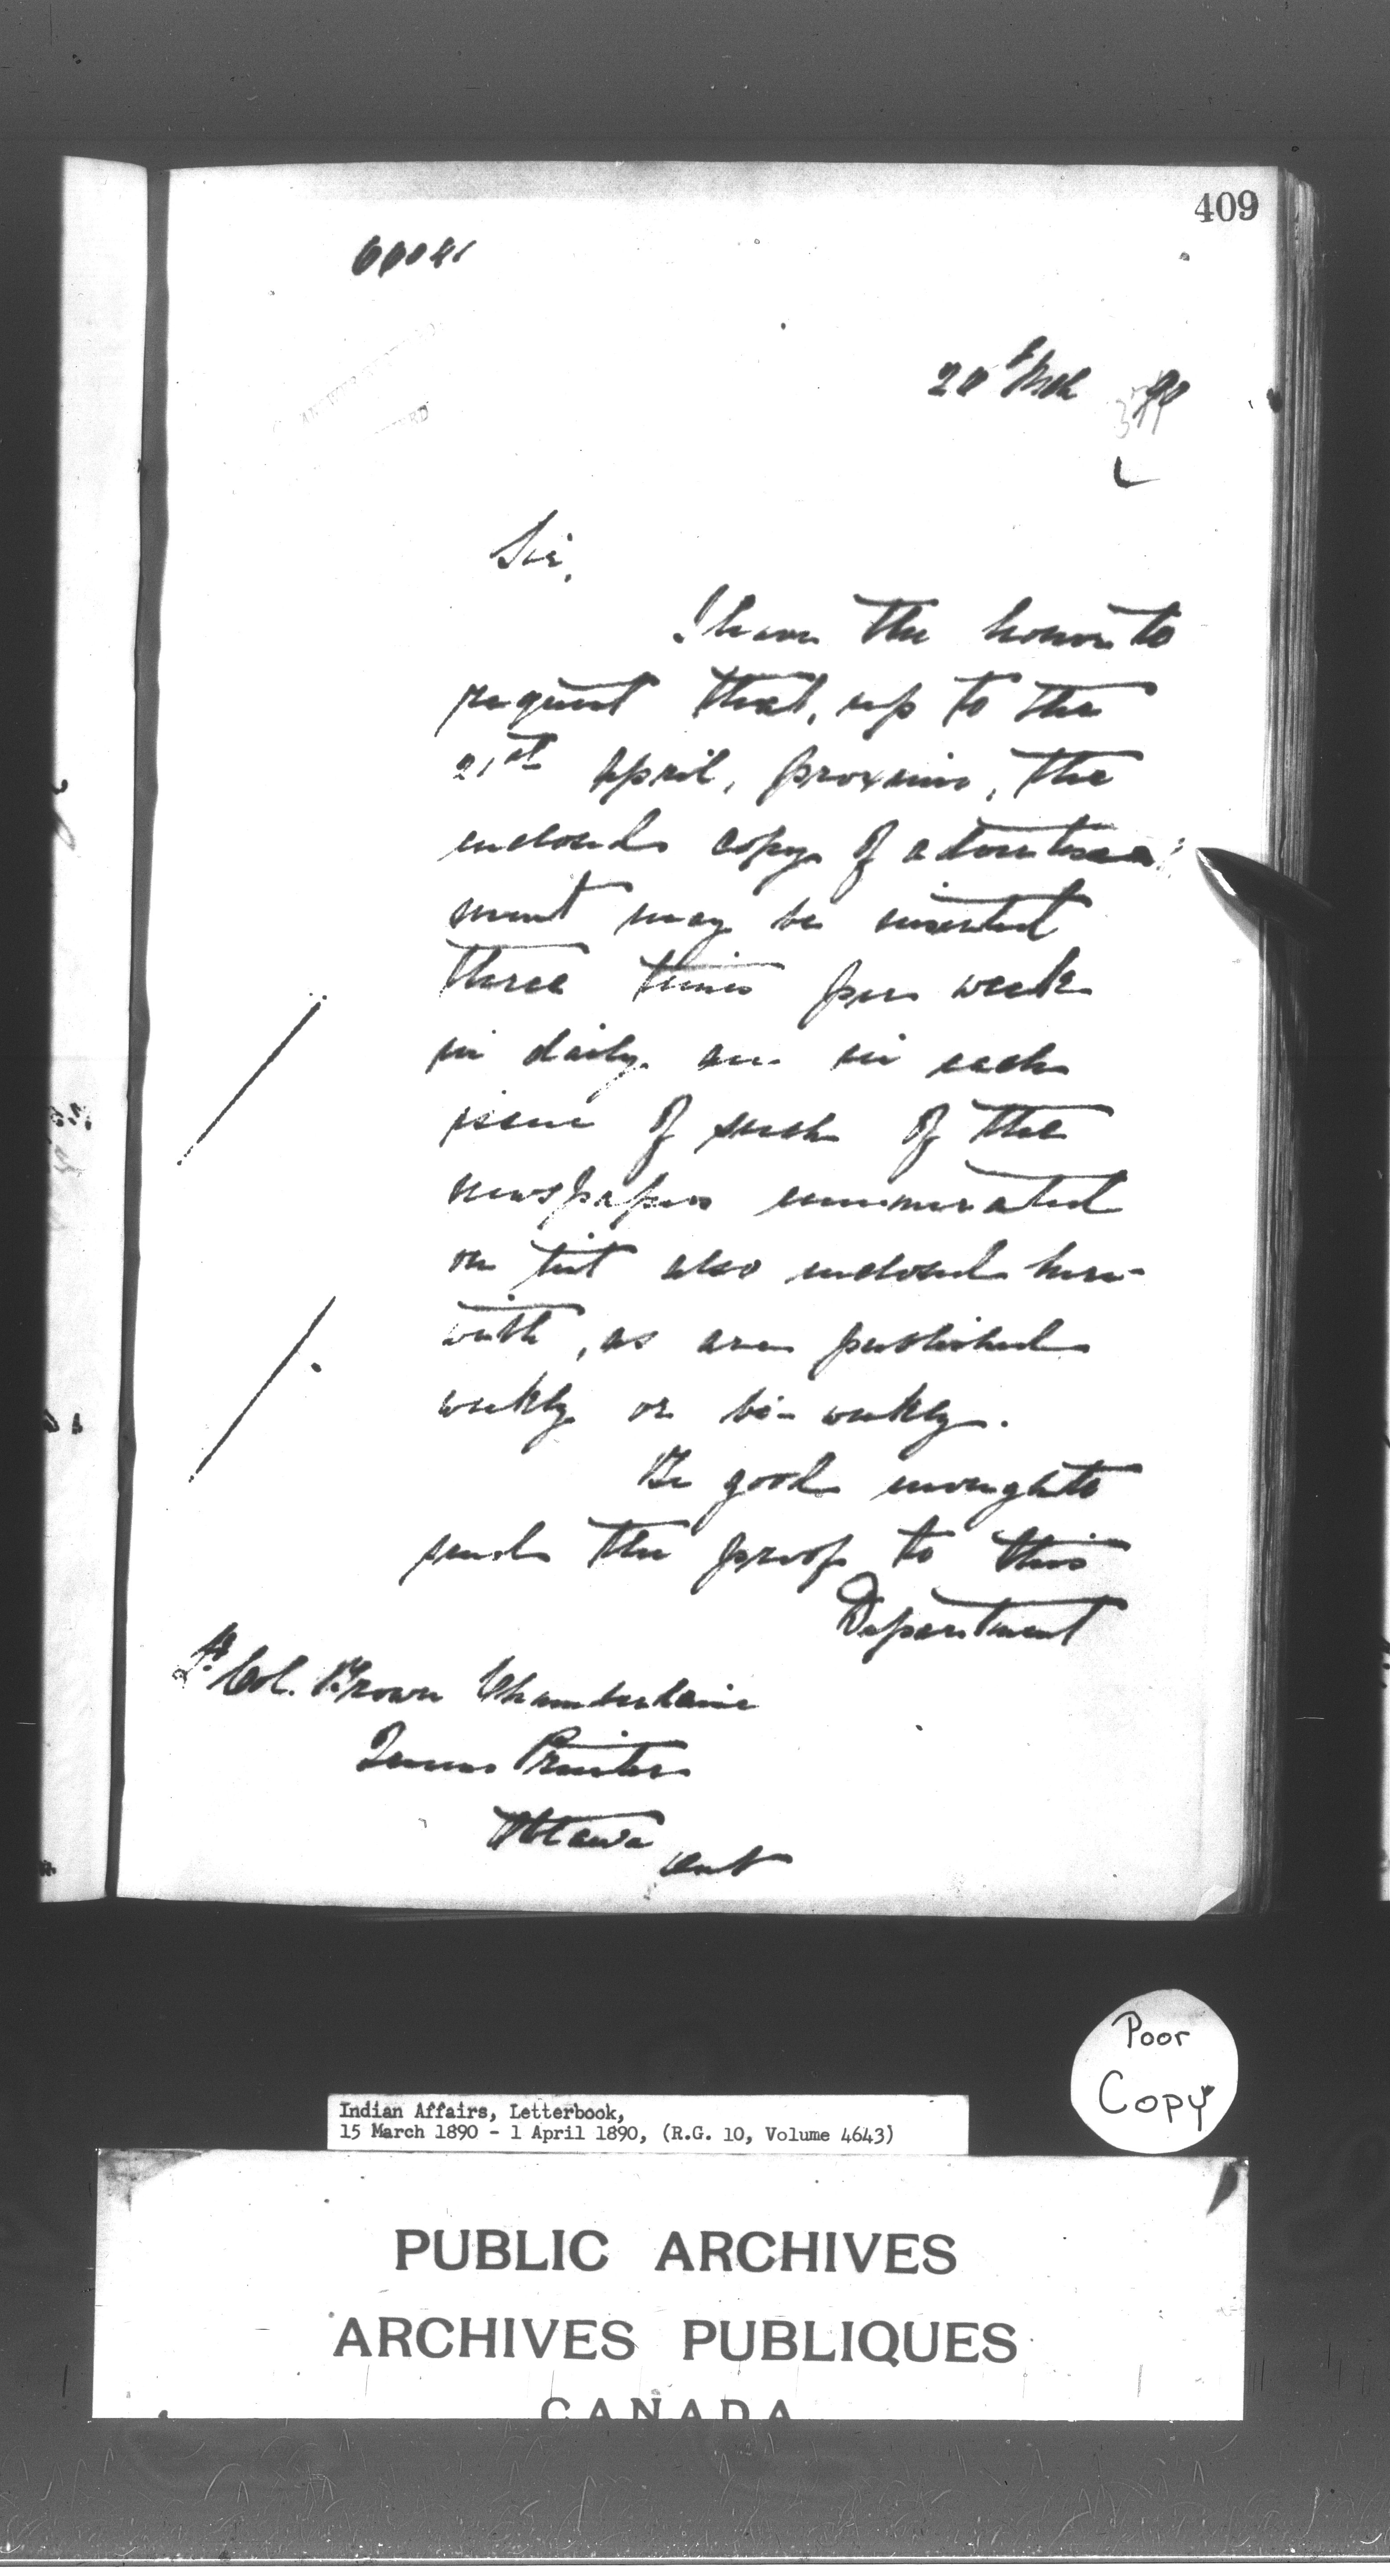 409
20 Mch 90
Sir,
I have the honor to
request that, up to the
21st April, proximo, the
enclosed copy of advertise
ment may be inserted
three times per week
in daily and in each
issue of such of the
newspapers enumerated
on list also enclosed here-
with, as are published
weekly or bi-weekly.
Be good enough to
send the proof to this
Department
Lt Col. Brown Chamberlain
Queens Printer
Ottawa
Ont
Poor
Copy
Indian Affairs, Letterbook,
15 March 1890 - 1 April 1890, (R.G. 10, Volume 4643)
PUBLIC ARCHIVES
ARCHIVES PUBLIQUES
CANADA